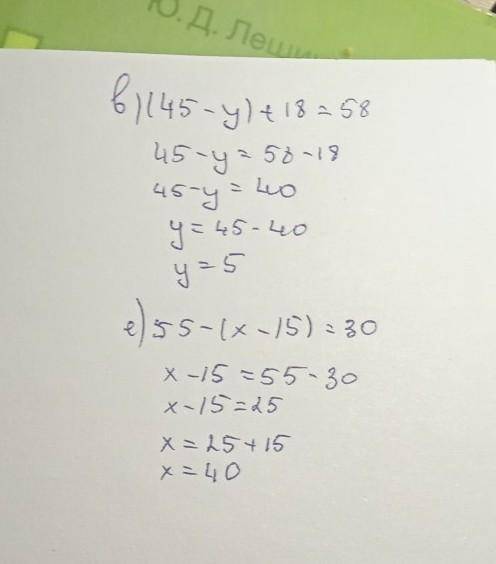 Ю. Д. Лещи
в) (45 - y) + 18 = 58
45 - y = 58 - 18
45 - y = 40
y = 45 - 40
y = 5
е) 55 - (x - 15) = 30
x - 15 = 55 - 30
x - 15 = 25
x = 25 + 15
x = 40